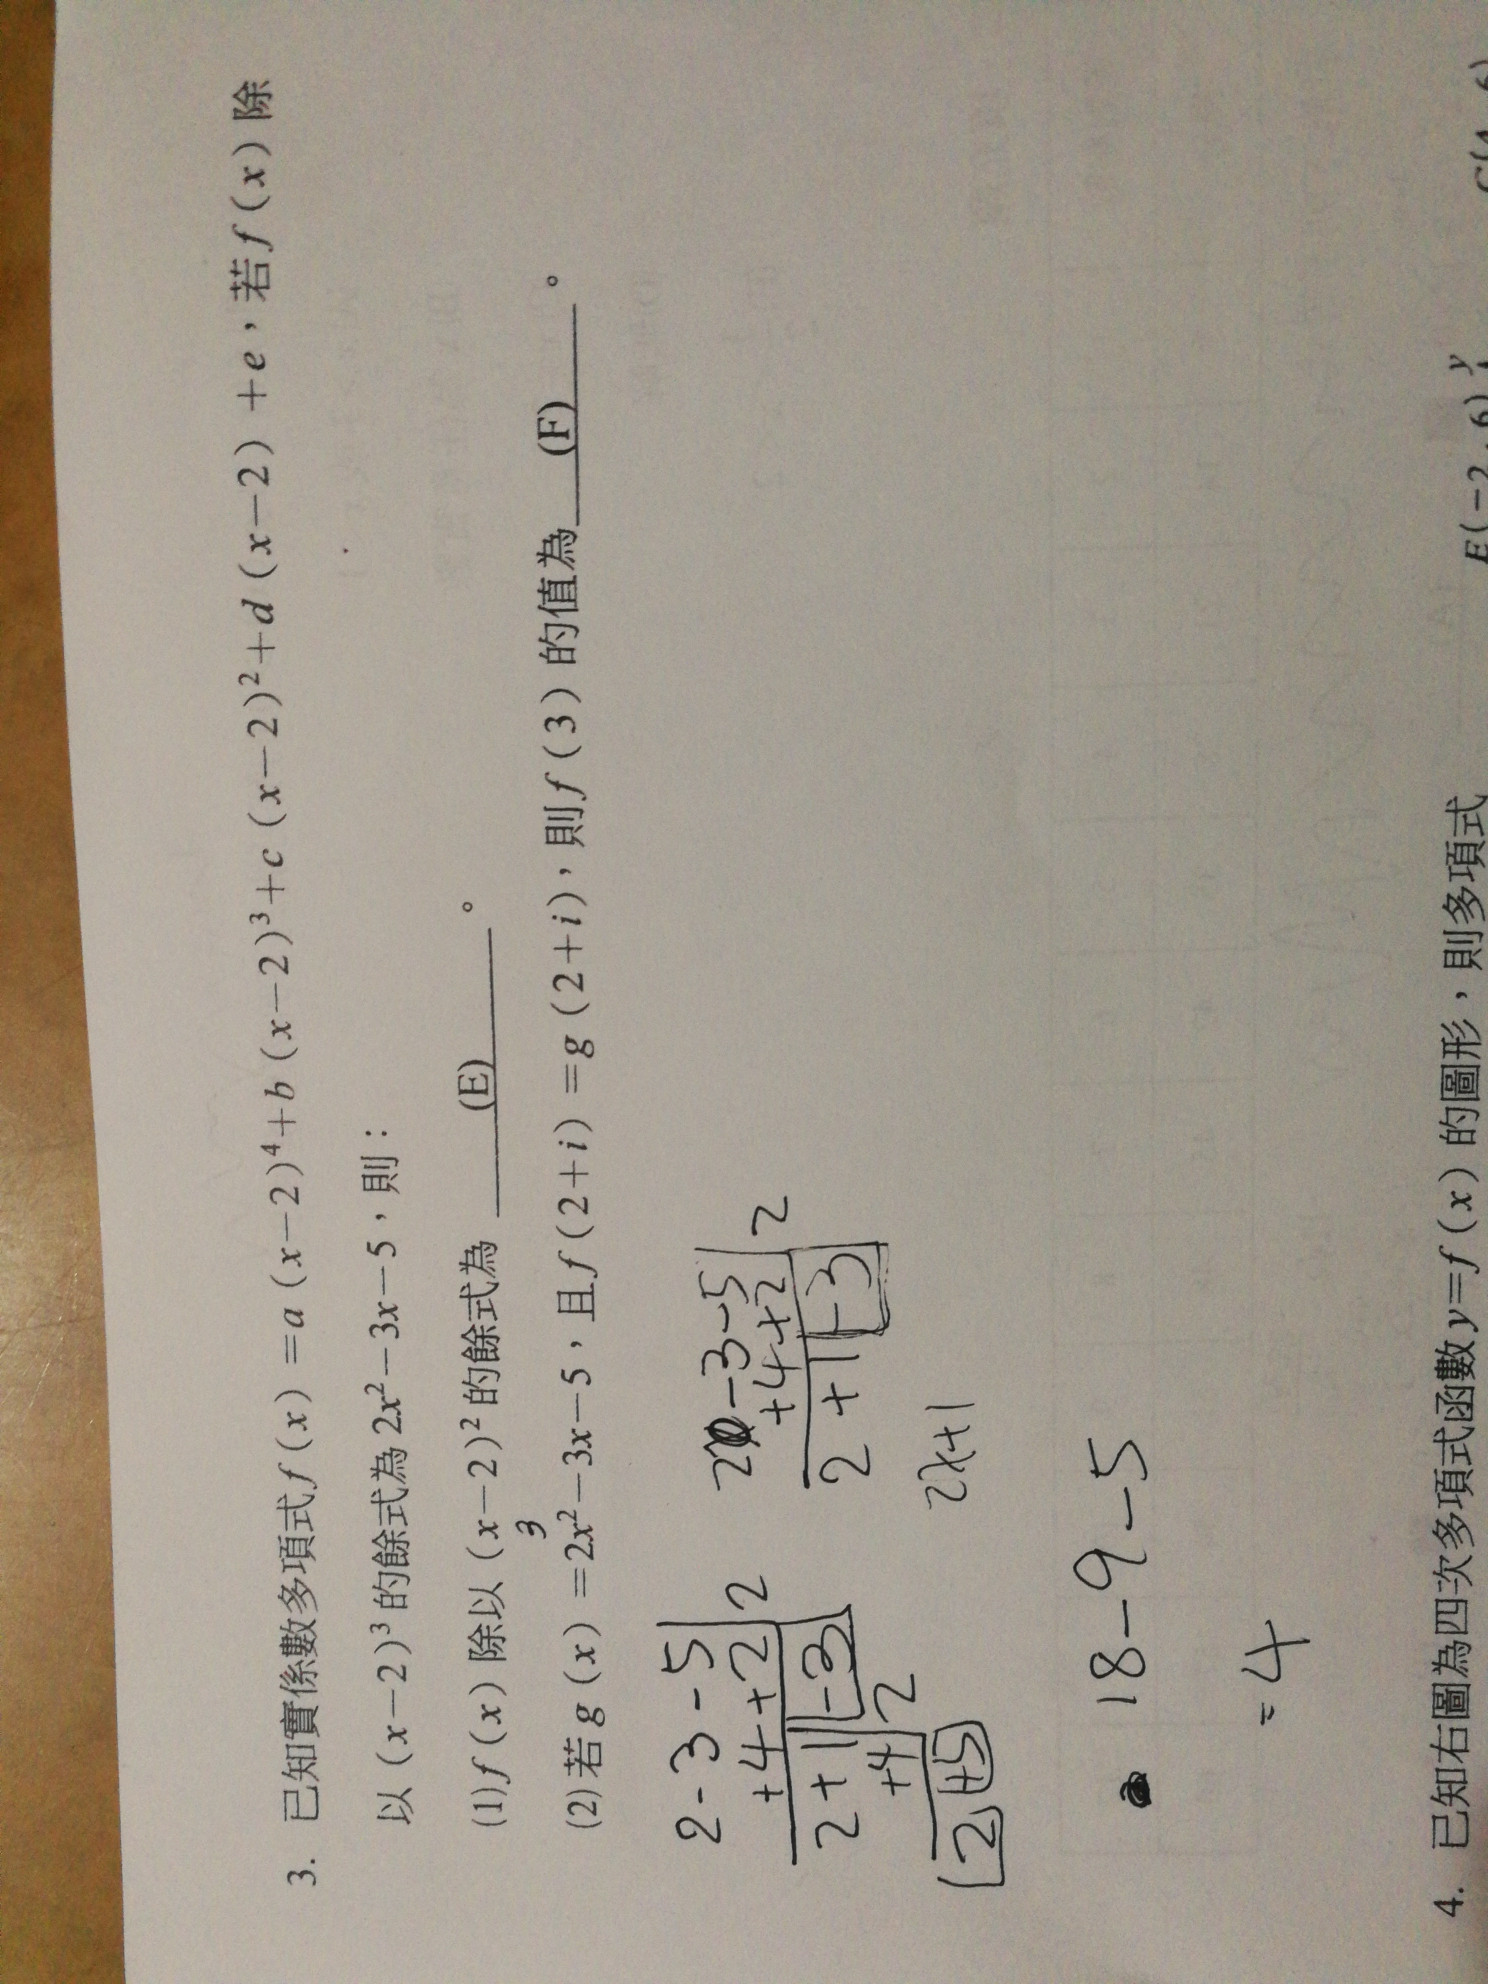 3. 已知實係數多項式 f(x)=a(x-2)⁴+b(x-2)³+c(x-2)²+d(x-2)+e，若 f(x) 除
以 (x-2)³ 的餘式為 2x²-3x-5，則：
(1) f(x) 除以 (x-2)² 的餘式為 (E) 。
3
(2) 若 g(x)=2x²-3x-5，且 f(2+i)=g(2+i)，則 f(3) 的值為 (F) 。
2-3-5 2
+4+2
2+1 -3
+4 2
2 +5
2 -3-5 2
+4+2
2+1 -3
2x+1
18-9-5
=4
4. 已知右圖為四次多項式函數 y=f(x) 的圖形，則多項式
E(-2,6) y